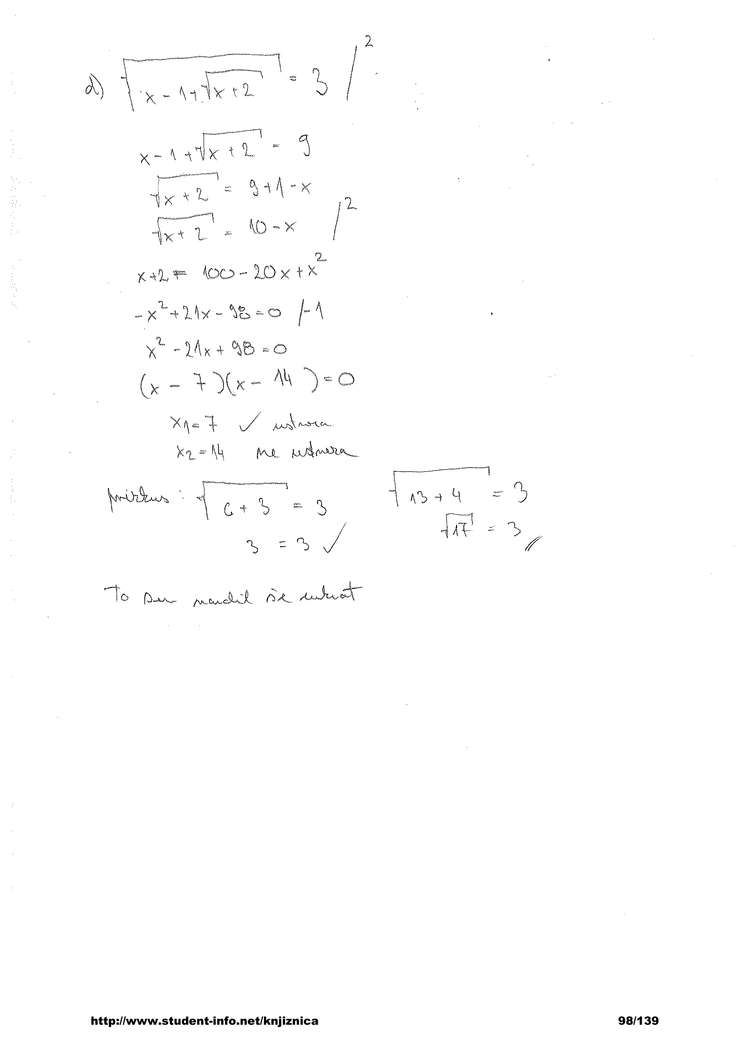 d) √(x-1+√(x+2)) = 3 /²
x-1+√(x+2) = 9
√(x+2) = 9+1-x
√(x+2) = 10-x /²
x+2 = 100-20x+x²
-x²+21x-98=0 /-1
x²-21x+98=0
(x-7)(x-14)=0
x₁=7 ✓ ustreza
x₂=14 ne ustreza
preizkus: √(6+3) = 3
3 = 3 ✓
√(13+4) = 3
√17 = 3 //
To sem naredil še enkrat
http://www.student-info.net/knjiznica 98/139